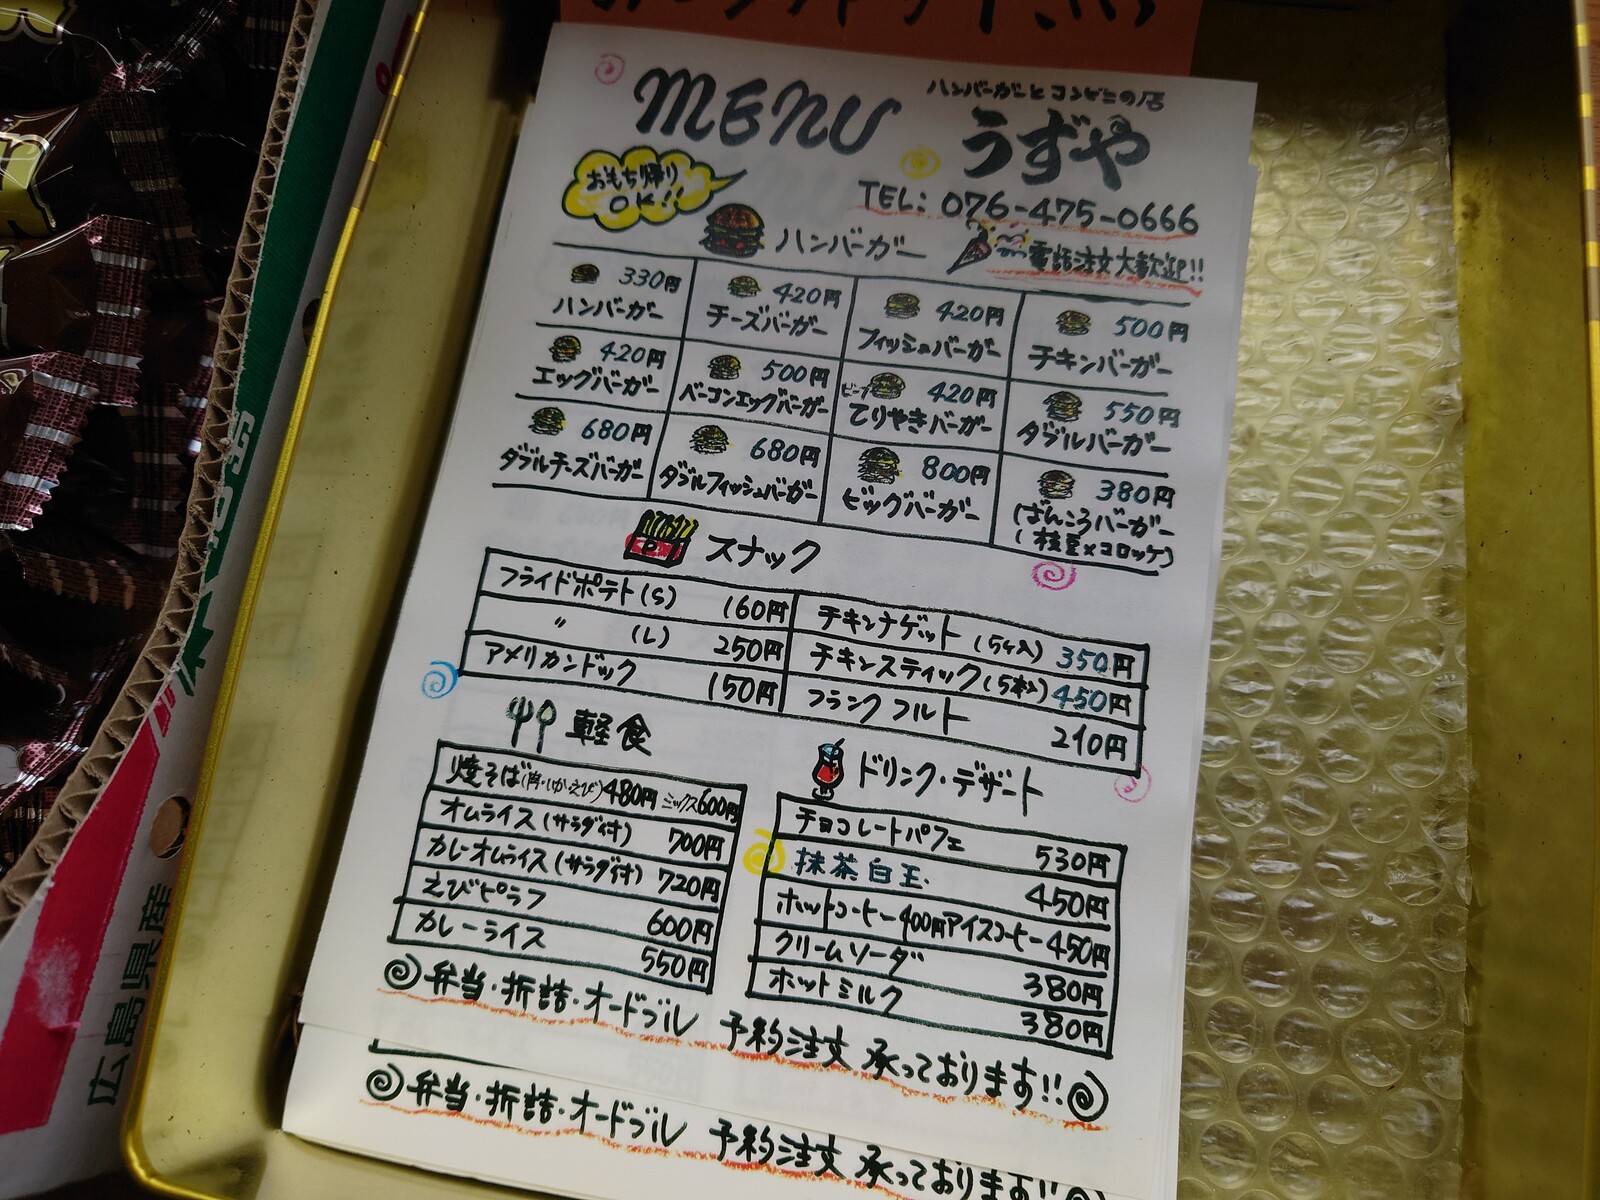 MENU
ハンバーガーとコンビニの店
うずや
おもち帰り
OK!!
TEL: 076-475-0666
ハンバーガー
電話注文大歓迎!!
330円
ハンバーガー
420円
チーズバーガー
420円
フィッシュバーガー
500円
チキンバーガー
420円
エッグバーガー
500円
ベーコンエッグバーガー
ビーフ 420円
てりやきバーガー
550円
ダブルバーガー
680円
ダブルチーズバーガー
680円
ダブルフィッシュバーガー
800円
ビッグバーガー
380円
ばんころバーガー
(枝豆×コロッケ)
スナック
フライドポテト(S) 160円
〃 (L) 250円
アメリカンドック 150円
チキンナゲット(5ケ入) 350円
チキンスティック(5本入) 450円
フランクフルト 210円
軽食
焼そば(肉・いか・えび)480円 ミックス600円
オムライス(サラダ付) 700円
カレーオムライス(サラダ付) 720円
えびピラフ 600円
カレーライス 550円
ドリンク・デザート
チョコレートパフェ 530円
抹茶白玉 450円
ホットコーヒー400円 アイスコーヒー450円
クリームソーダ 380円
ホットミルク 380円
弁当・折詰・オードブル 予約注文 承っております!!
弁当・折詰・オードブル 予約注文 承っております!!
広島県産